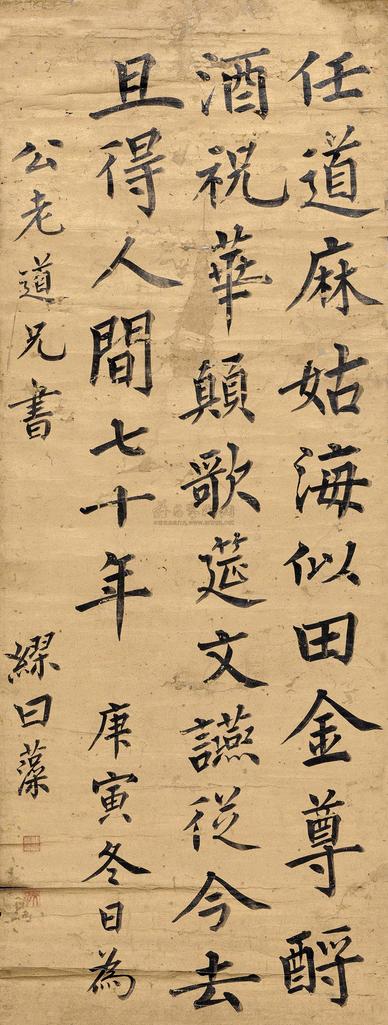 任道麻姑海似田金尊酹
酒祝華顛歌筵文讌從今去
且得人間七十年 庚寅冬日為
公老道兄書 繆曰藻